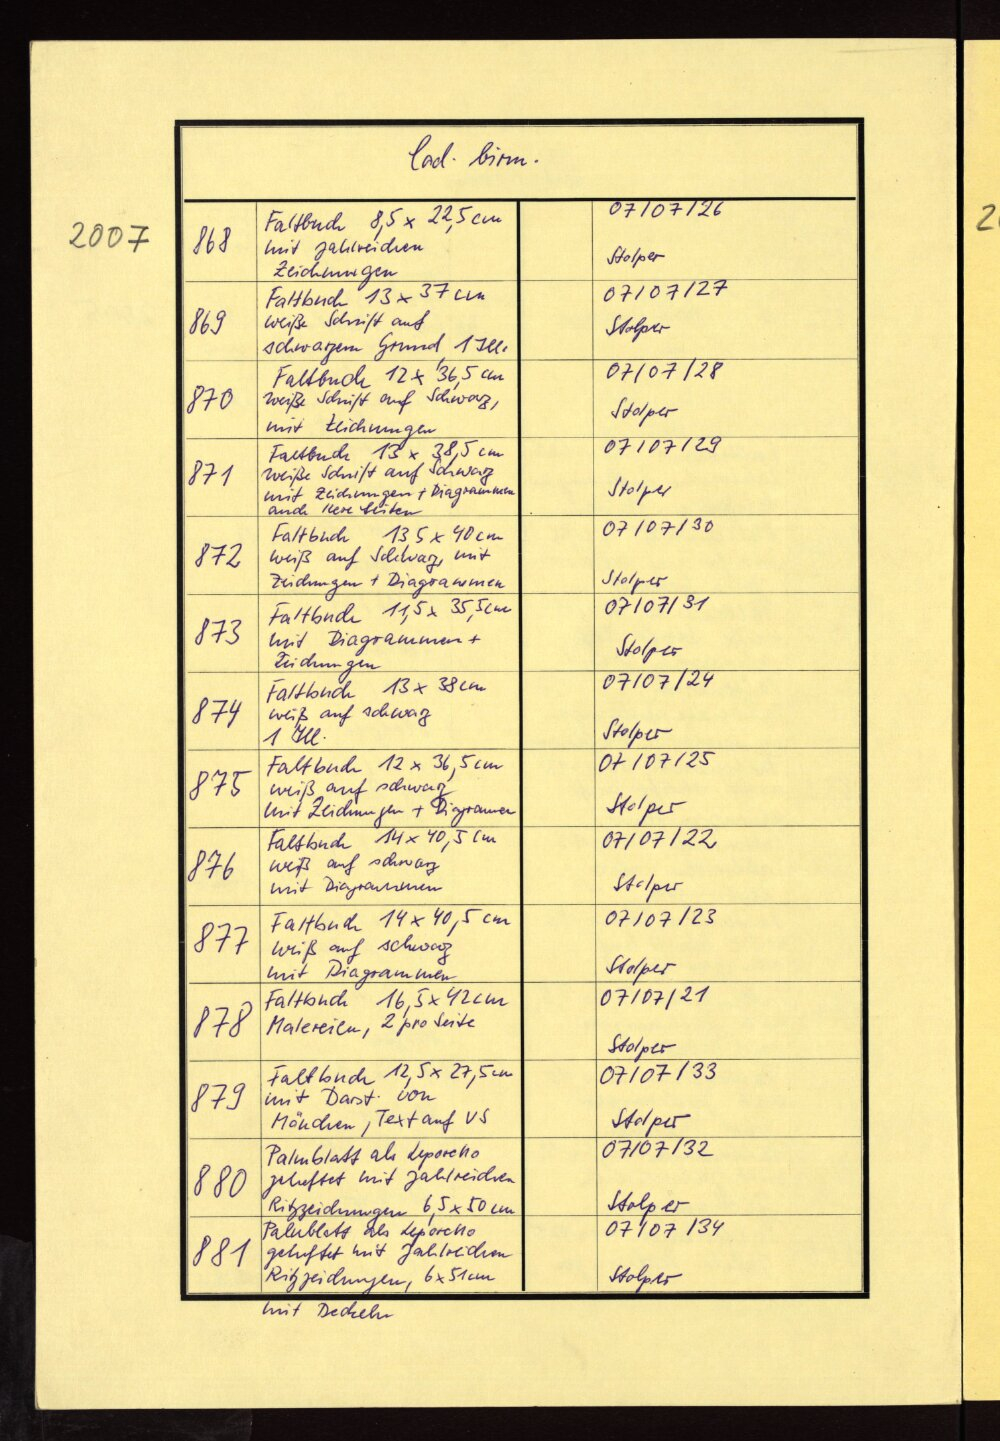 Cod. birm.
2007
868 Faltbuch 8,5 x 22,5 cm 07/07/26
mit zahlreichen
Zeichnungen Stolper
869 Faltbuch 13 x 37 cm 07/07/27
weiße Schrift auf Stolper
schwarzem Grund, 1 Ill.
870 Faltbuch 12 x 36,5 cm 07/07/28
weiße Schrift auf Schwarz, Stolper
mit Zeichnungen
871 Faltbuch 13 x 38,5 cm 07/07/29
weiße Schrift auf Schwarz
mit Zeichnungen + Diagrammen Stolper
auch leere Seiten
872 Faltbuch 13 5 x 40 cm 07/07/30
weiß auf Schwarz, mit
Zeichnungen + Diagrammen Stolper
873 Faltbuch 11,5 x 35,5 cm 07/07/31
mit Diagrammen + Stolper
Zeichnungen
874 Faltbuch 13 x 38 cm 07/07/24
weiß auf schwarz
1 Ill. Stolper
875 Faltbuch 12 x 36,5 cm 07/07/25
weiß auf schwarz
mit Zeichnungen + Diagrammen Stolper
876 Faltbuch 14 x 40,5 cm 07/07/22
weiß auf schwarz
mit Diagrammen Stolper
877 Faltbuch 14 x 40,5 cm 07/07/23
weiß auf schwarz
mit Diagrammen Stolper
878 Faltbuch 16,5 x 42 cm 07/07/21
Malereien, 2 pro Seite
Stolper
879 Faltbuch 12,5 x 27,5 cm 07/07/33
mit Darst. von
Mönchen, Text auf VS Stolper
880 Palmblatt als Leporello 07/07/32
geheftet mit zahlreichen
Ritzzeichnungen 6,5 x 50 cm Stolper
881 Palmblatt als Leporello 07/07/34
geheftet mit zahlreichen
Ritzzeichnungen, 6 x 51 cm Stolper
mit Deckeln